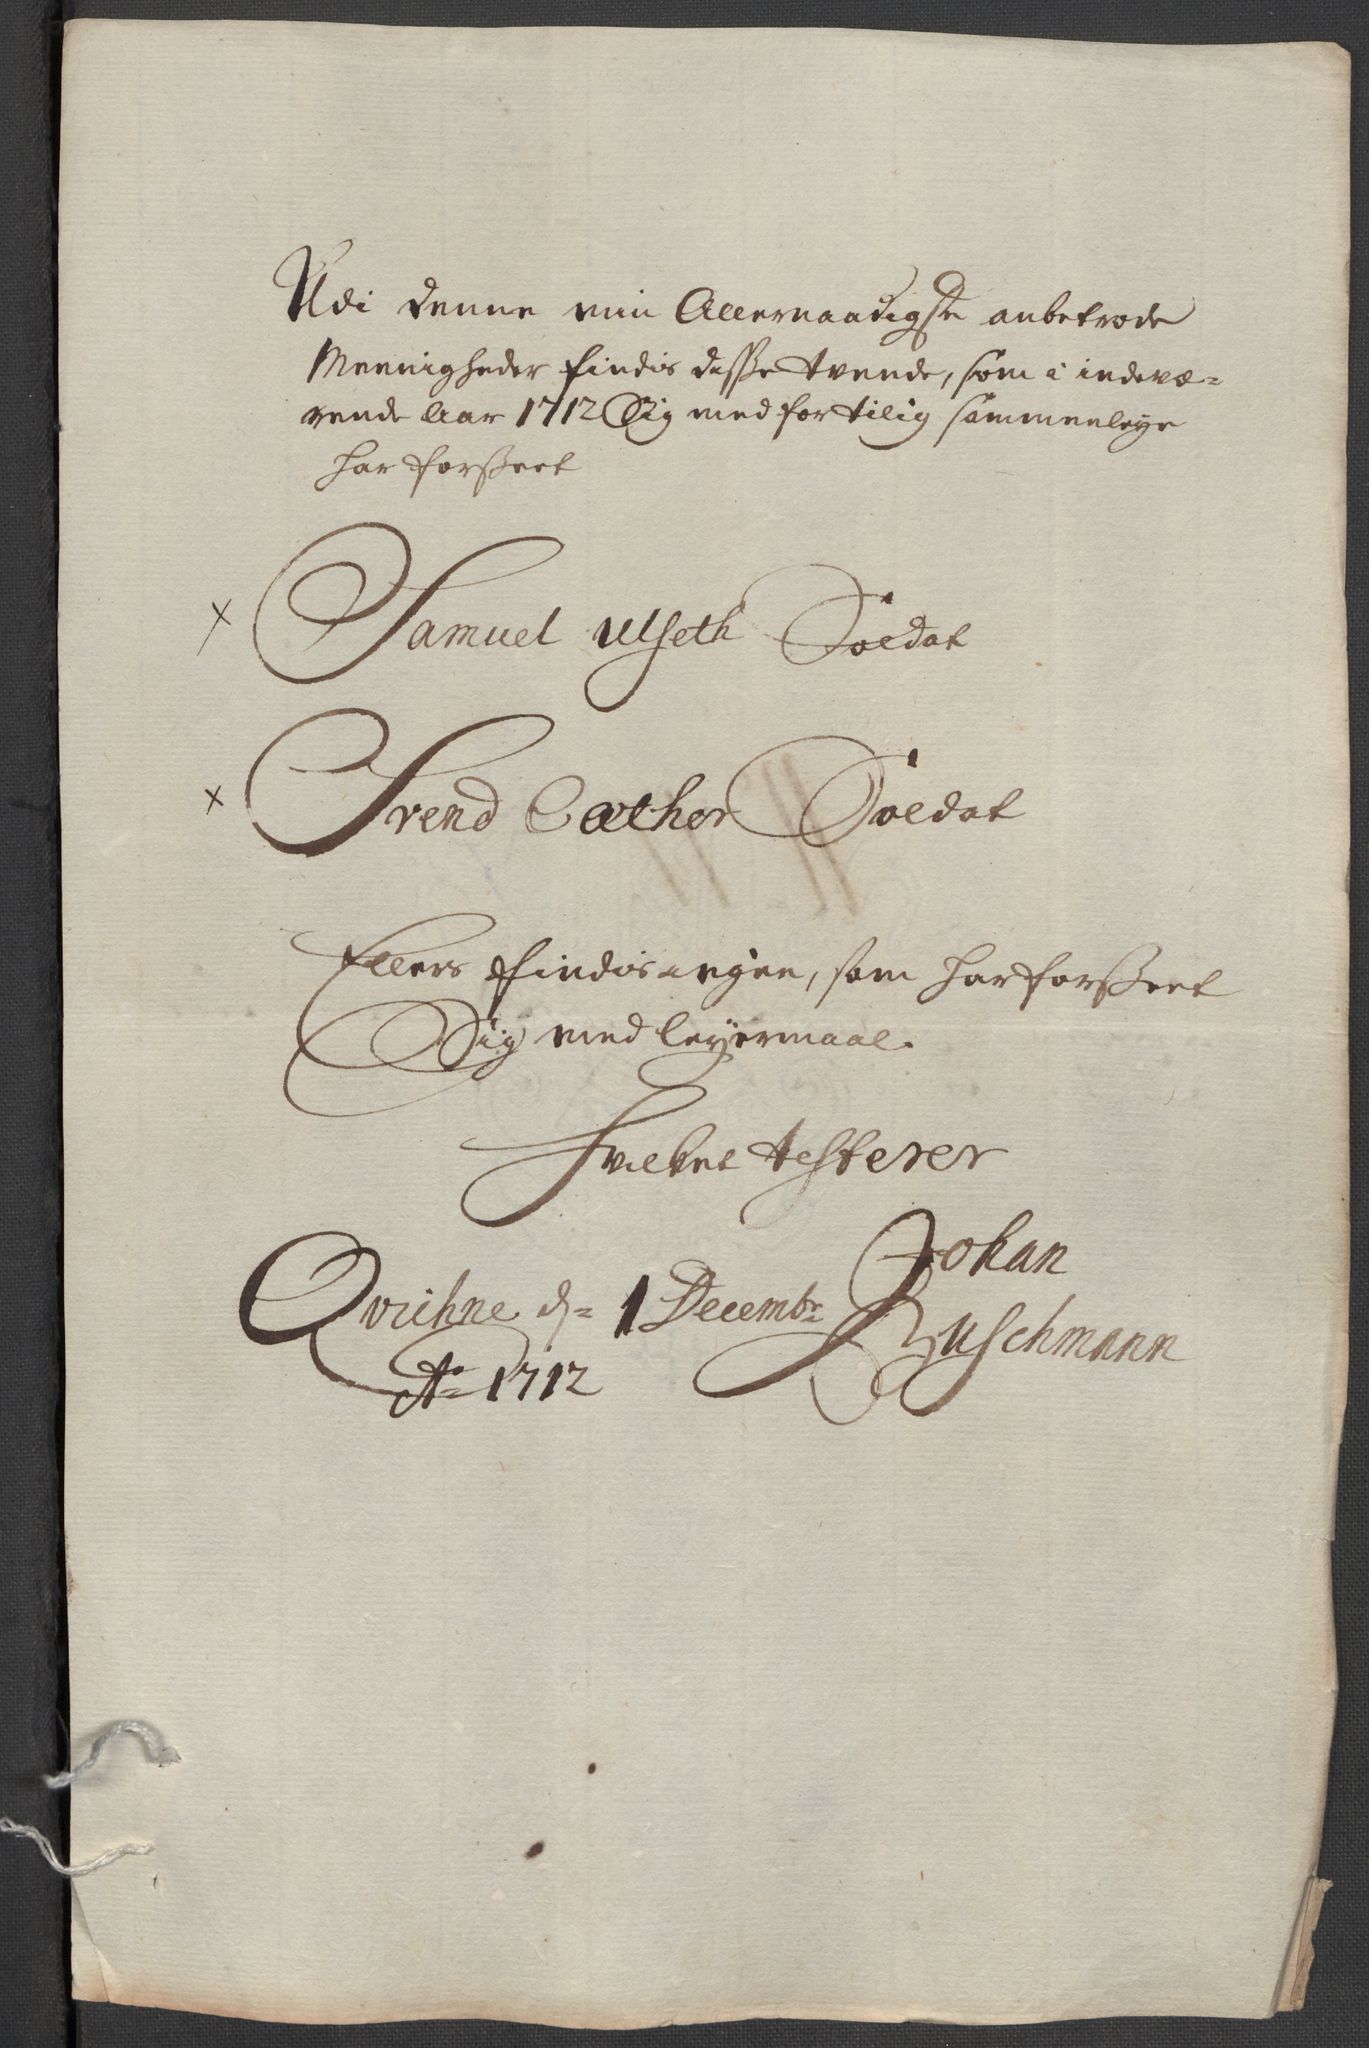 Udi denne min Allernaadigste anbetrode
Meenigheder findis disse tvende, som i indevæ-
rende Aar 1712 Sig med for tilig sammenleye
har forseet
x Samuel Ulseth Soldat
x Svend Soldat
Ellers findis ingen, som har forseet
Sig med leyermaal.
Hvilket testerer
Qvichne d= 1 Decembr:
Ao 1712
Johan
Buschmann